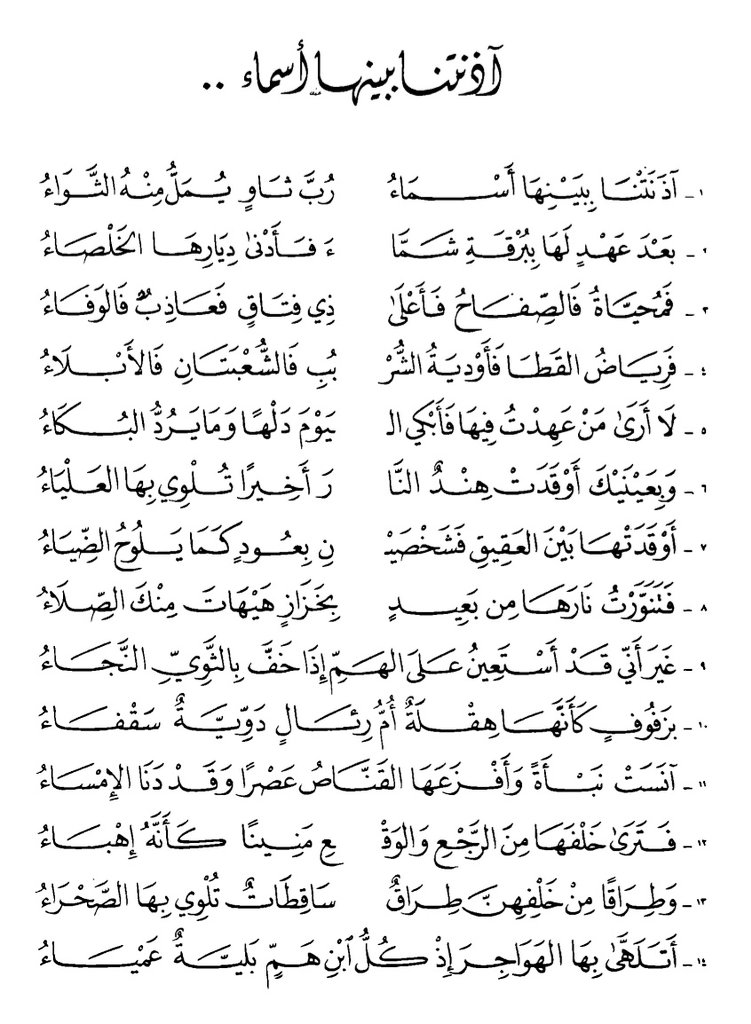 آذنتنا ببينها أسماء ..
١ - آذَنَتْنَا بِبَيْنِهَا أَسْمَاءُ رُبَّ ثَاوٍ يُمَلُّ مِنْهُ الثَّوَاءُ
٢ - بَعْدَ عَهْدٍ لَهَا بِبُرْقَةِ شَمَّا ءَ فَأَدْنَى دِيَارِهَا الخَلْصَاءُ
٣ - فَمُحَيَّاةُ فَالصِّفَاحُ فَأَعْلَى ذِي فِتَاقٍ فَعَاذِبٌ فَالوَفَاءُ
٤ - فَرِيَاضُ القَطَا فَأَوْدِيَةُ الشُّرْ بُبِ فَالشُّعْبَتَانِ فَالأَبْلَاءُ
٥ - لَا أَرَى مَنْ عَهِدْتُ فِيهَا فَأَبْكِي الـ يَوْمَ دَلْهًا وَمَا يَرُدُّ البُكَاءُ
٦ - وَبِعَيْنَيْكَ أَوْقَدَتْ هِنْدٌ النَّا رَ أَخِيرًا تُلْوِي بِهَا العَلْيَاءُ
٧ - أَوْقَدَتْهَا بَيْنَ العَقِيقِ فَشَخْصَيْـ نِ بِعُودٍ كَمَا يَلُوحُ الضِّيَاءُ
٨ - فَتَنَوَّرْتُ نَارَهَا مِن بَعِيدٍ بِخَزَازٍ هَيْهَاتَ مِنْكَ الصِّلَاءُ
٩ - غَيْرَ أَنِّي قَدْ أَسْتَعِينُ عَلَى الهَمِّ إِذَا خَفَّ بِالثَّوِيِّ النَّجَاءُ
١٠ - بِزَفُوفٍ كَأَنَّهَا هِقْلَةٌ أُمُّ رِئَالٍ دَوِّيَّةٌ سَقْفَاءُ
١١ - آنَسَتْ نَبْأَةً وَأَفْزَعَهَا القَنَّاصُ عَصْرًا وَقَدْ دَنَا الإِمْسَاءُ
١٢ - فَتَرَى خَلْفَهَا مِنَ الرَّجْعِ وَالوَقْـ عِ مَنِينًا كَأَنَّهُ إِهْبَاءُ
١٣ - وَطِرَاقًا مِنْ خَلْفِهِنَّ طِرَاقٌ سَاقِطَاتٌ تُلْوِي بِهَا الصَّحْرَاءُ
١٤ - أَتَلَهَّى بِهَا الهَوَاجِرَ إِذْ كُلُّ ٱبْنِ هَمٍّ بَلِيَّةٌ عَمْيَاءُ